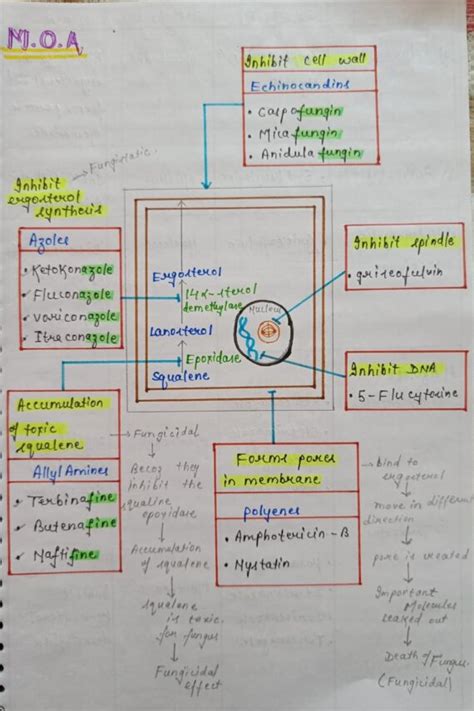 M.O.A
Inhibit cell wall
Echinocandins
• Caspofungin
• Micafungin
• Anidulafungin
Fungistatic
Inhibit
ergosterol
synthesis
Azoles
• Ketokonazole
• Fluconazole
• voriconazole
• Itraconazole
Ergosterol
14α-sterol
demethylase
Lanosterol
Epoxidase
Squalene
Nucleus
Inhibit spindle
• griseofulvin
Inhibit DNA
• 5-Flucytosine
Accumulation
of toxic
squalene
Allyl Amines
• Terbinafine
• Butenafine
• Naftifine
Fungicidal
Becoz they
inhibit the
squaline
epoxidase
Accumulation
of squalene
squalene
is toxic
for fungus
Fungicidal
effect
Forms pores
in membrane
polyenes
• Amphotericin-B
• Nystatin
bind to
ergosterol
move in different
direction
pore is created
Important
Molecules
leaked out
Death of Fungus
(Fungicidal)